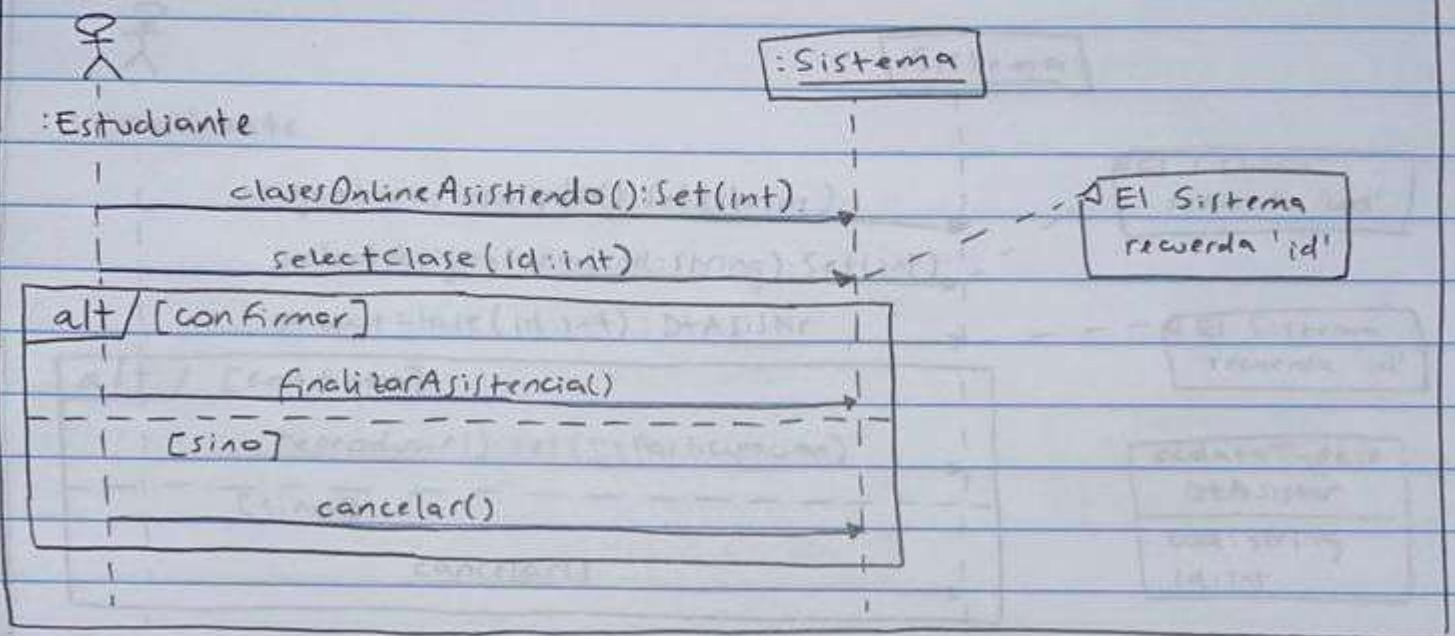 :Sistema
:Estudiante
clasesOnlineAsistiendo():Set(int)
El Sistema
recuerda 'id'
selectClase(id:int)
alt [confirmar]
finalizarAsistencia()
[sino]
cancelar()